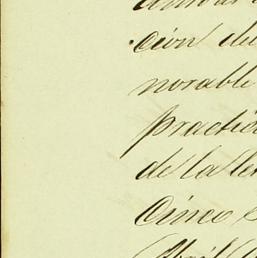 cion de
norable
practic
de la le
Cinco
Abril